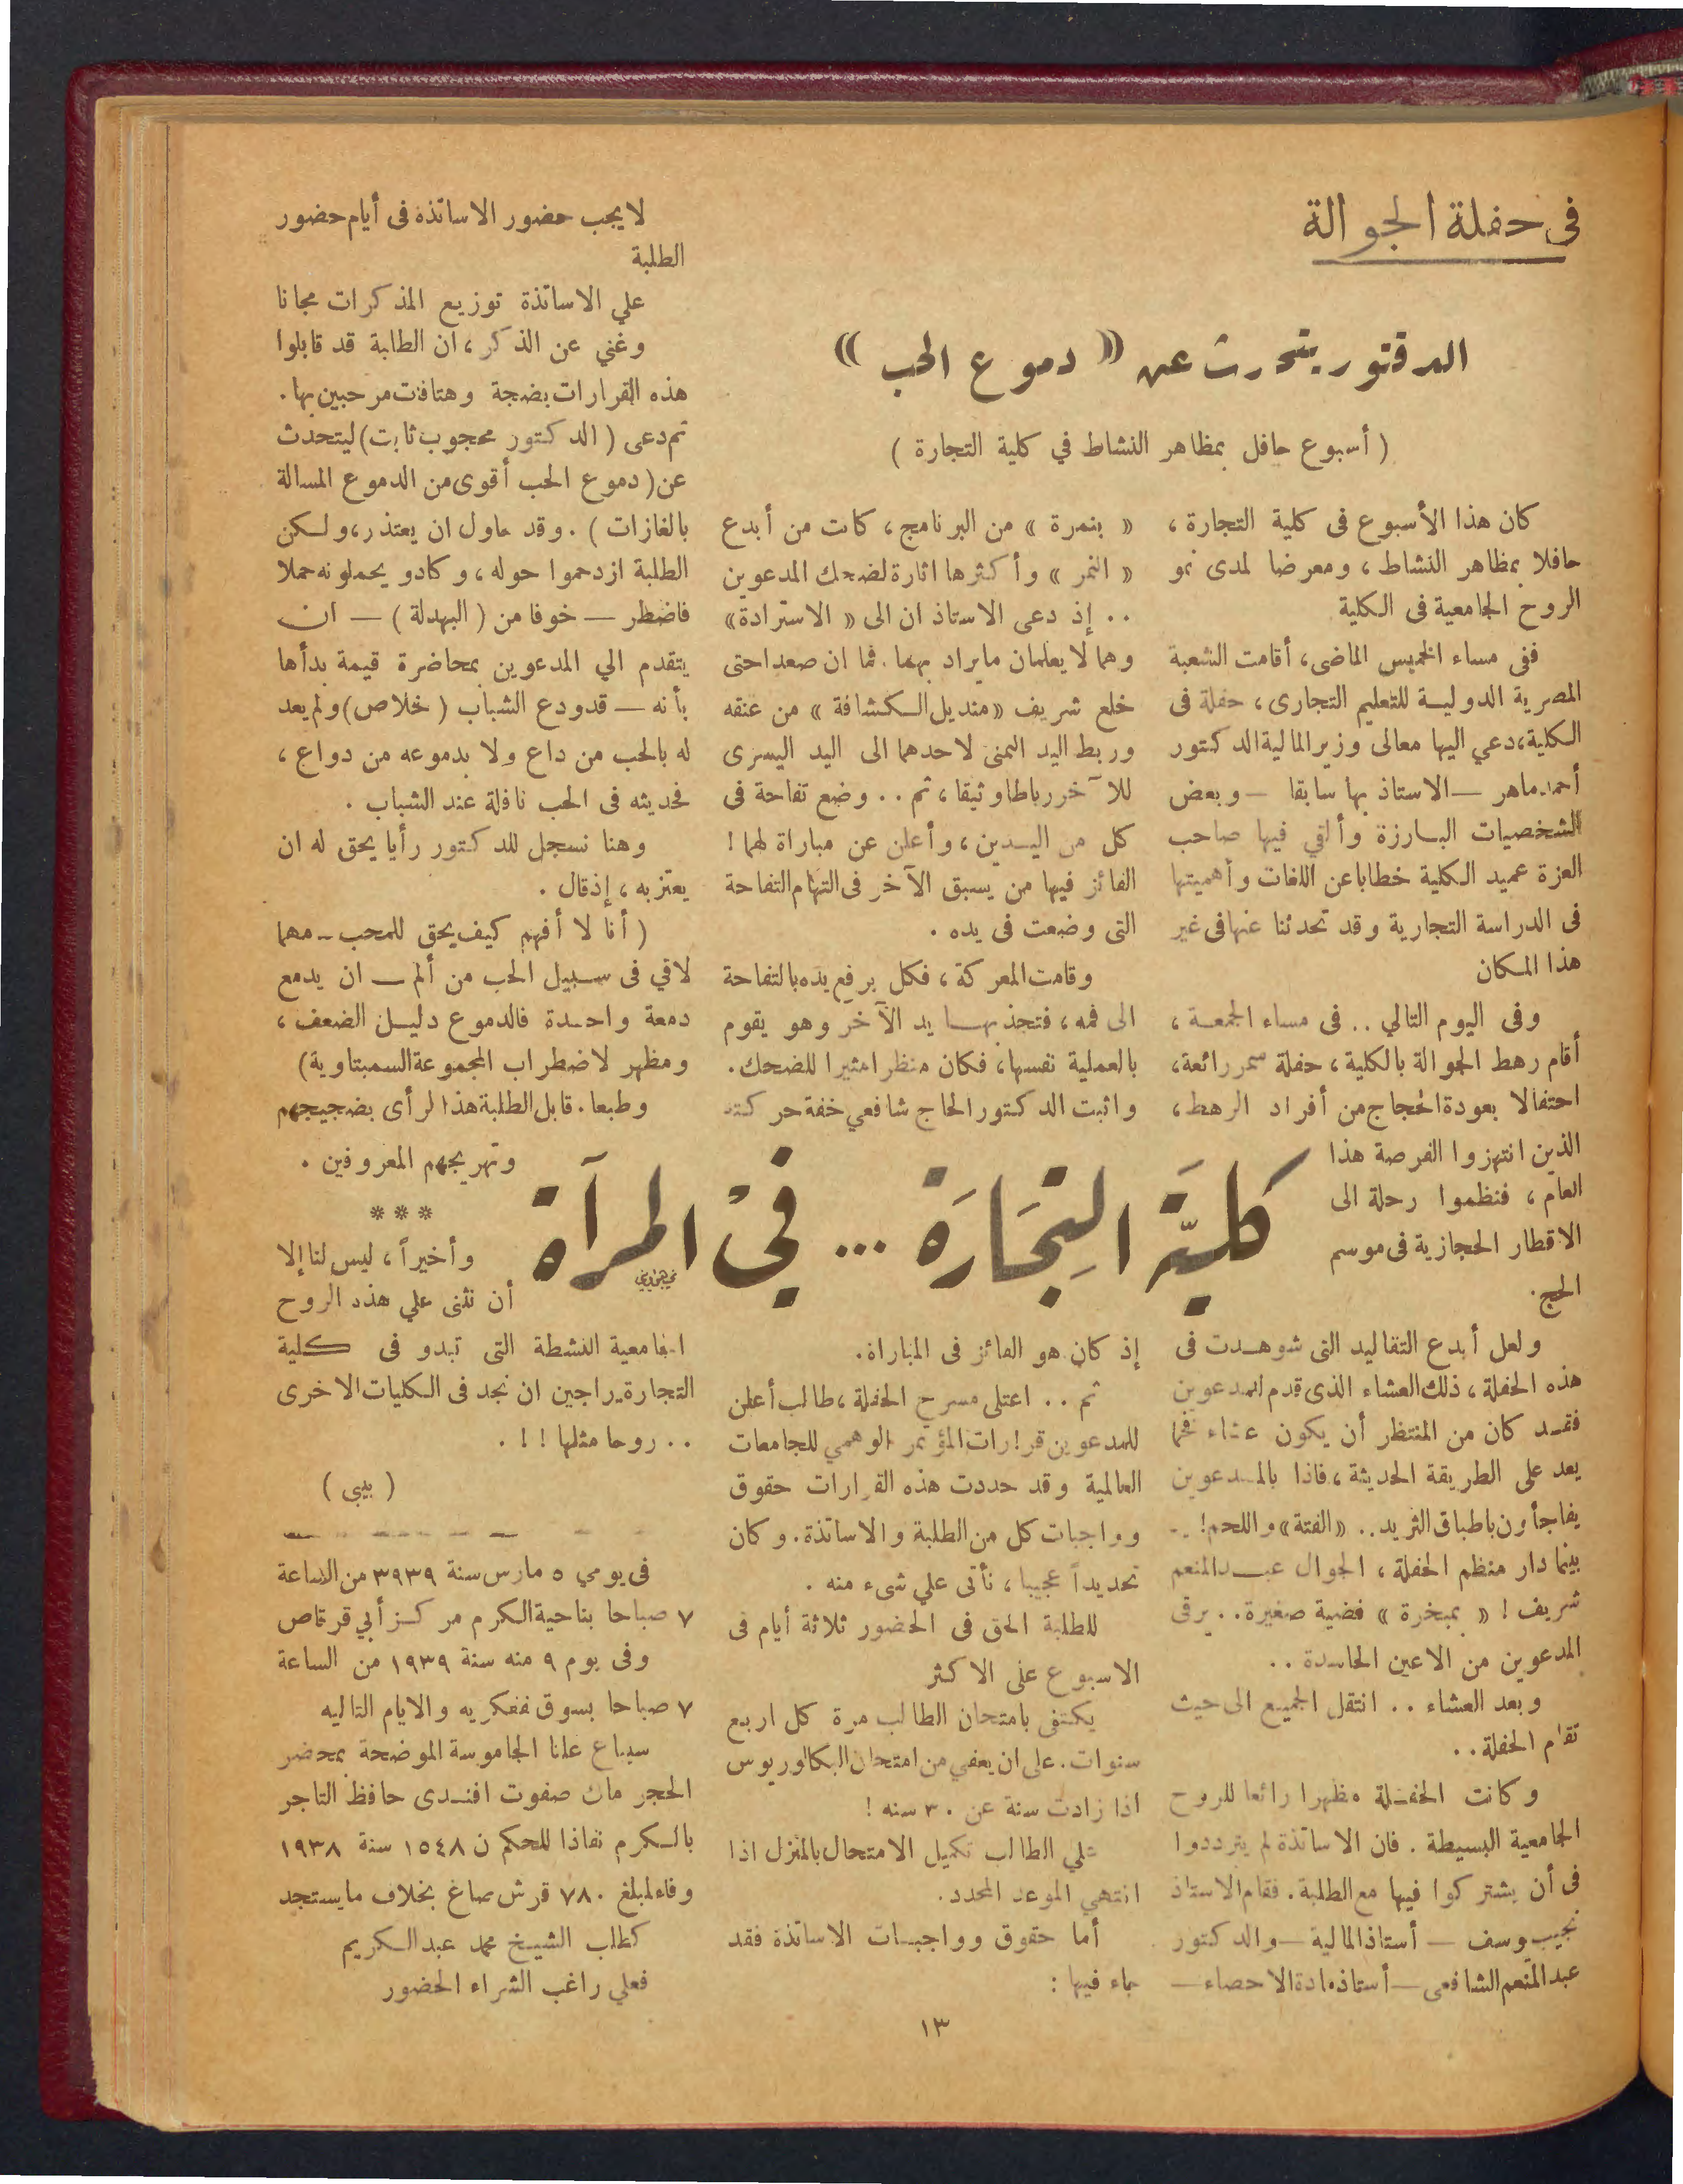 فى حفلة الجوالة
الدكتور يتحدث عن « دموع الحب »
( أسبوع حافل بمظاهر النشاط في كلية التجارة )
كان هذا الأسبوع فى كلية التجارة ،
حافلا بمظاهر النشاط ، ومعرضا لمدى نمو
الروح الجامعية فى الكلية
ففى مساء الخميس الماضى ، أقامت الشعبة
المصرية الدولية للتعليم التجارى ، حفلة فى
الكلية ، دعي اليها معالى وزير المالية الدكتور
أحمد ماهر — الاستاذ بها سابقا — وبعض
الشخصيات البارزة وألقي فيها صاحب
العزة عميد الكلية خطابا عن اللغات وأهميتها
فى الدراسة التجارية وقد تحدثنا عنها فى غير
هذا المكان
وفى اليوم التالي .. فى مساء الجمعة ،
أقام رهط الجوالة بالكلية ، حفلة سمر رائعة ،
احتفالا بعودة الحجاج من أفراد الرهط ،
الذين انتهزوا الفرصة هذا
العام ، فنظموا رحلة الى
الاقطار الحجازية فى موسم
الحج .
كلية التجارة ... في المرآة
ولعل أبدع التقاليد التى شوهدت فى
هذه الحفلة ، ذلك العشاء الذى قدم للمدعوين
فقد كان من المنتظر أن يكون عشاء فخما
يعد على الطريقة الحديثة ، فاذا بالمدعوين
يفاجأون باطباق الثريد .. « الفتة » واللحم ! ..
بينما دار منظم الحفلة ، الجوال عبد المنعم
شريف ! « بمبخرة » فضية صغيرة .. يرقى
المدعوين من الاعين الحاسدة ..
وبعد العشاء .. انتقل الجميع الى حيث
تقام الحفلة ..
وكانت الحفلة مظهرا رائعا للروح
الجامعية البسيطة . فان الاساتذة لم يترددوا
فى أن يشتركوا فيها مع الطلبة . فقام الاستاذ
نجيب وسف — أستاذ المالية — والدكتور
عبد المنعم الشافعى — أستاذ مادة الاحصاء —
« بنمرة » من البرنامج ، كانت من أبدع
« النمر » وأكثرها اثارة لضحك المدعوين
.. إذ دعى الاستاذ ان الى « الاسترادة »
وهما لا يعلمان ما يراد بهما . فما ان صعدا حتى
خلع شريف « منديل الكشافة » من عنقه
وربط اليد اليمنى لاحدهما الى اليد اليسرى
للآخر رباطا وثيقا ، ثم .. وضع تفاحة فى
كل من اليدين ، وأعلن عن مباراة لهما !
الفائز فيها من يسبق الآخر فى التهام التفاحة
التى وضعت فى يده .
وقامت المعركة ، فكل يرفع يده بالتفاحة
الى فمه ، فتجذبها يد الآخر وهو يقوم
بالعملية نفسها ، فكان منظرا مثيرا للضحك .
واثبت الدكتور الحاج شافعي خفة حركته
إذ كان هو الفائز فى المباراة .
ثم .. اعتلى مسرح الحفلة ، طالب أعلن
للمدعوين قرارات المؤتمر الوهمي للجامعات
العالمية وقد حددت هذه القرارات حقوق
وواجبات كل من الطلبة والاساتذة . وكان
تحديداً عجيبا ، نأتى علي شىء منه .
للطلبة الحق فى الحضور ثلاثة أيام فى
الاسبوع على الاكثر
يكتفى بامتحان الطالب مرة كل اربع
سنوات . على ان يعفي من امتحان البكالوريوس
اذا زادت سنة عن ٣٠ سنه !
علي الطالب تكميل الامتحال بالمنزل اذا
انتهي الموعد المحدد .
أما حقوق وواجبات الاساتذة فقد
جاء فيها :
لا يجب حضور الاساتذة فى أيام حضور
الطلبة
علي الاساتذة توزيع المذكرات مجانا
وغني عن الذكر ، ان الطلبة قد قابلوا
هذه القرارات بضجة وهتافات مرحبين بها .
ثم دعى ( الدكتور محجوب ثابت ) ليتحدث
عن ( دموع الحب أقوى من الدموع المسالة
بالغازات ) . وقد حاول ان يعتذر ، ولكن
الطلبة ازدحموا حوله ، وكادو يحملونه حملا
فاضطر — خوفا من ( البهدلة ) — ان
يتقدم الي المدعوين بمحاضرة قيمة بدأها
بأنه — قد ودع الشباب ( خلاص ) ولم يعد
له بالحب من داع ولا بدموعه من دواع ،
فحديثه فى الحب نافلة عند الشباب .
وهنا نسجل للدكتور رأيا يحق له ان
يعتز به ، إذ قال .
( أنا لا أفهم كيف يحق للمحب — مهما
لاقي فى سبيل الحب من ألم — ان يدمع
دمعة واحدة فالدموع دليل الضعف ،
ومظهر لاضطراب المجموعة السمبتاوية )
وطبعا . قابل الطلبة هذا الرأى بضجيجهم
وتهريجهم المعروفين .
* * *
وأخيراً ، ليس لنا إلا
أن نثنى علي هذه الروح
الجامعية النشطة التى تبدو فى كلية
التجارة راجين ان نجد فى الكليات الاخرى
.. روحا مثلها ! ! .
( بيبى )
فى يومي ٥ مارس سنة ٣٩٣٩ من الساعة
٧ صباحا بناحية الكرم مركز أبي قرقاص
وفى يوم ٩ منه سنة ١٩٣٩ من الساعة
٧ صباحا بسوق ففكريه والايام التاليه
سيباع علنا الجاموسة الموضحة بمحضر
الحجر ملك صفوت افندى حافظ التاجر
بالكرم نفاذا للحكم ن ١٥٤٨ سنة ١٩٣٨
وفاء لمبلغ ٧٨٠ قرش صاغ بخلاف ما يستجد
كطلب الشيخ محمد عبد الكريم
فعلي راغب الشراء الحضور
١٣